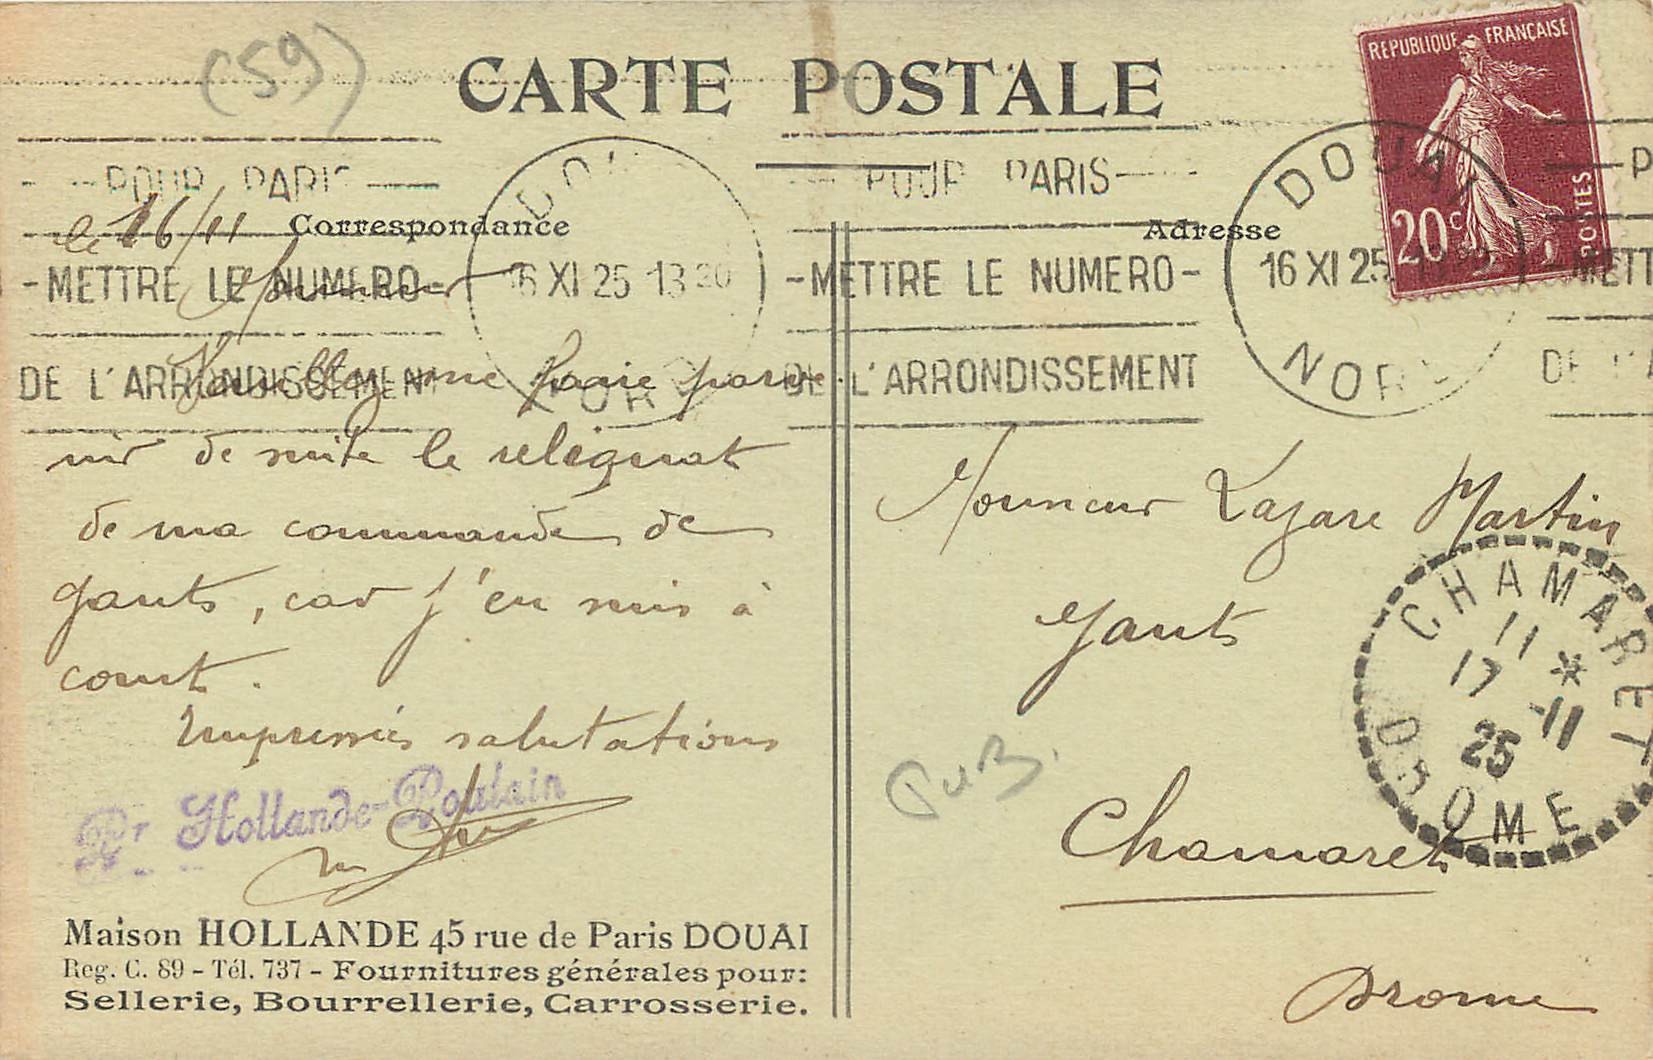 (59)
CARTE POSTALE
REPUBLIQUE FRANÇAISE
20c
POSTES
POUR PARIS
METTRE LE NUMERO
DE L'ARRONDISSEMENT
DOUAI
16 XI 25 13 30
NORD
POUR PARIS
METTRE LE NUMERO
DE L'ARRONDISSEMENT
DOUAI
16 XI 25
NORD
P
METT
DE L'A
Correspondance
le 16/11
Monsieur
Veuillez me faire parve
nir de suite le reliquat
de ma commande de
gants, car j'en suis à
court.
Empressées salutations
Pr Hollande-Poulain
Maison HOLLANDE 45 rue de Paris DOUAI
Reg. C. 89 - Tél. 737 - Fournitures générales pour:
Sellerie, Bourrellerie, Carrosserie.
Adresse
Monsieur Lazare Martin
gants
Chamaret
Drome
PUB.
CHAMARET
11 *
17 -11
25
DROME